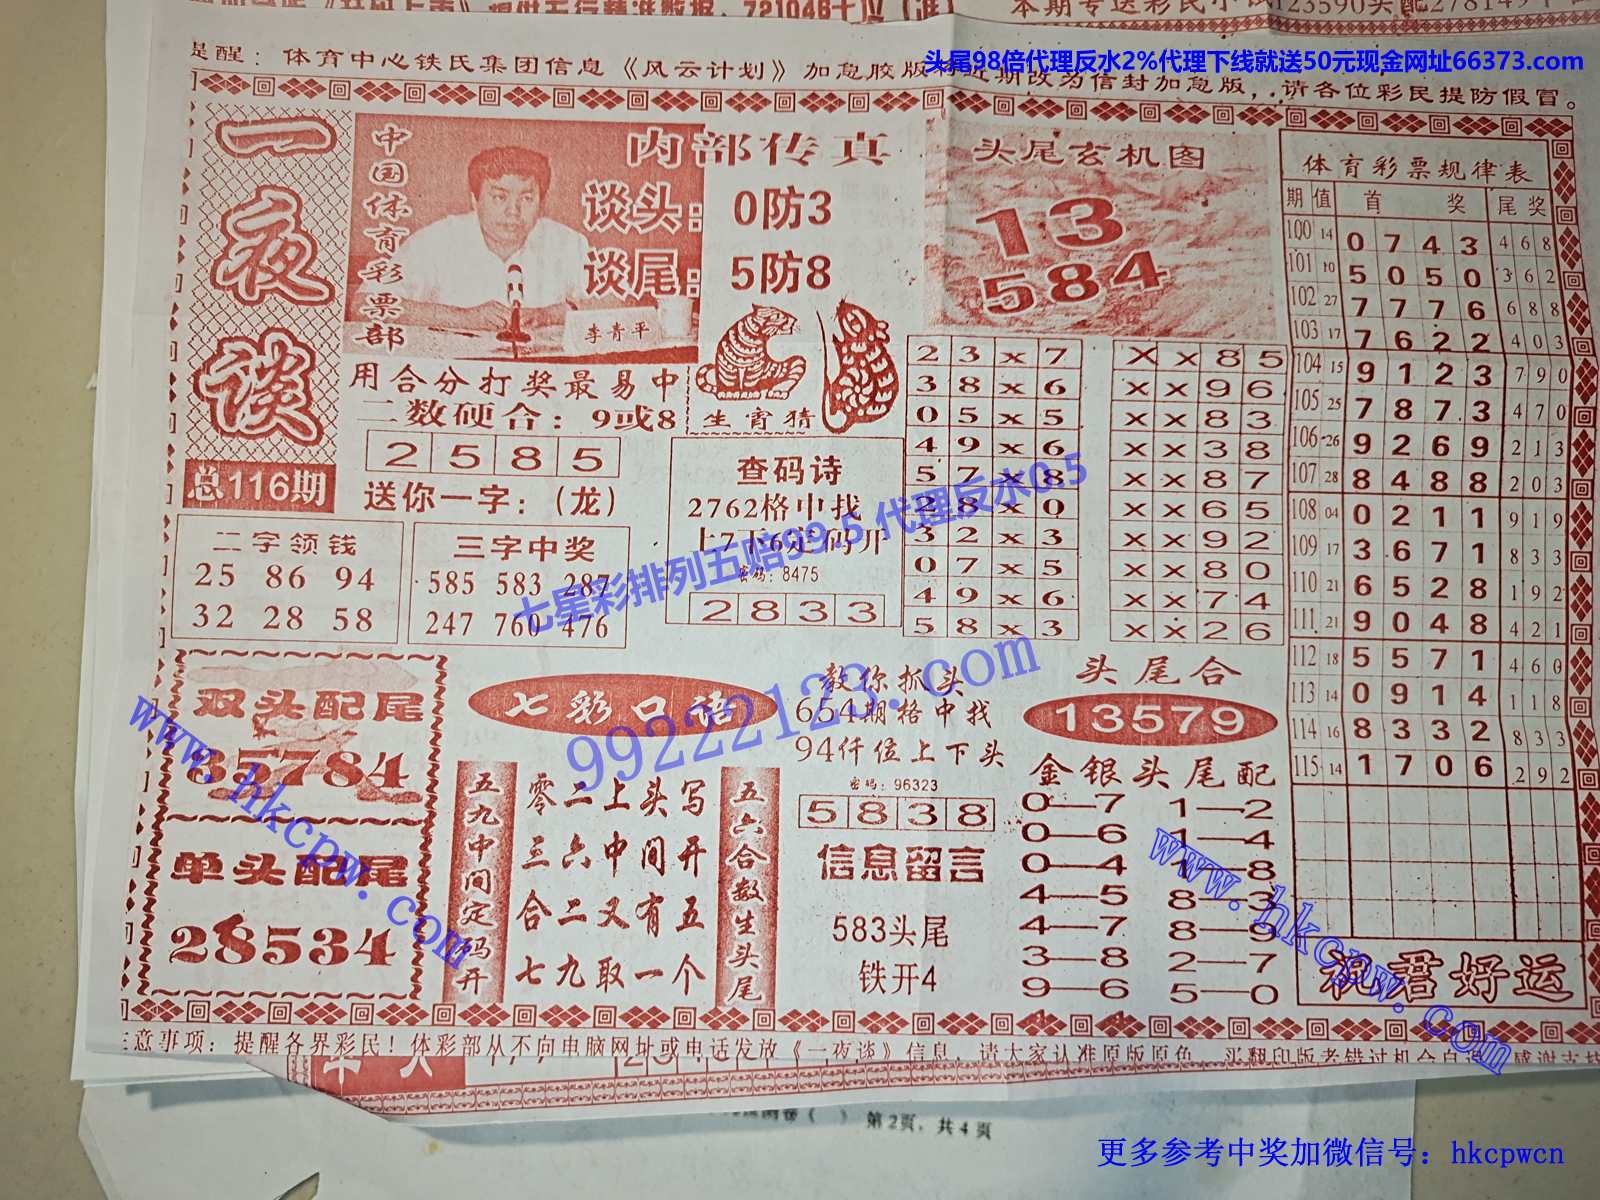 721046十位(准)
本期专送彩民小试123590头配278149
头尾98倍代理反水2%代理下线就送50元现金网址66373.com
提醒：体育中心铁氏集团信息《风云计划》加急胶版
近期改为信封加急版，请各位彩民提防假冒。
一夜谈
总116期
中国体育彩票部
内部传真
谈头：0防3
谈尾：5防8
李青平
用合分打奖最易中
二数硬合：9或8
2 5 8 5
送你一字：（龙）
生肖猜
头尾玄机图
13
584
二字领钱
25 86 94
32 28 58
三字中奖
585 583 287
247 760 476
查码诗
2762格中找
上7下6定码开
密码：8475
2 8 3 3
2 3 x 7
3 8 x 6
0 5 x 5
4 9 x 6
5 7 x 8
2 8 x 0
3 2 x 3
0 7 x 5
4 9 x 6
5 8 x 3
X x 8 5
x x 9 6
x x 8 3
x x 3 8
x x 8 7
x x 6 5
x x 9 2
x x 8 0
x x 7 4
x x 2 6
体育彩票规律表
期 值 首 奖 尾 奖
100 14 0 7 4 3 4 6 8
101 10 5 0 5 0 3 6 2
102 27 7 7 7 6 6 8 8
103 17 7 6 2 2 4 0 3
104 15 9 1 2 3 7 9 0
105 25 7 8 7 3 4 7 0
106 26 9 2 6 9 2 1 3
107 28 8 4 8 8 2 0 3
108 04 0 2 1 1 9 1 9
109 17 3 6 7 1 8 3 3
110 21 6 5 2 8 1 9 2
111 21 9 0 4 8 4 2 1
112 18 5 5 7 1 4 6 0
113 14 0 9 1 4 1 1 8
114 16 8 3 3 2 8 3 3
115 14 1 7 0 6 2 9 2
祝君好运
七星彩排列五赔99.5 代理反水0.5
99222123.com
双头配尾
85784
单头配尾
28534
七彩口语
五九中间定码开
零二上头写
三六中间开
合二又有五
七九取一个
五六合数生头尾
教你抓头
654期格中找
94仟位上下头
密码：96323
5 8 3 8
信息留言
583头尾
铁开4
头尾合
13579
金银头尾配
0—7 1—2
0—6 1—4
0—4 1—8
4—5 8—3
4—7 8—9
3—8 2—7
9—6 5—0
www.hkcpw.com
www.hkcpw.com
注意事项：提醒各界彩民！体彩部从不向电脑网址或电话发放《一夜谈》信息，请大家认准原版原色
第2页，共4页
更多参考中奖加微信号：hkcpwcn